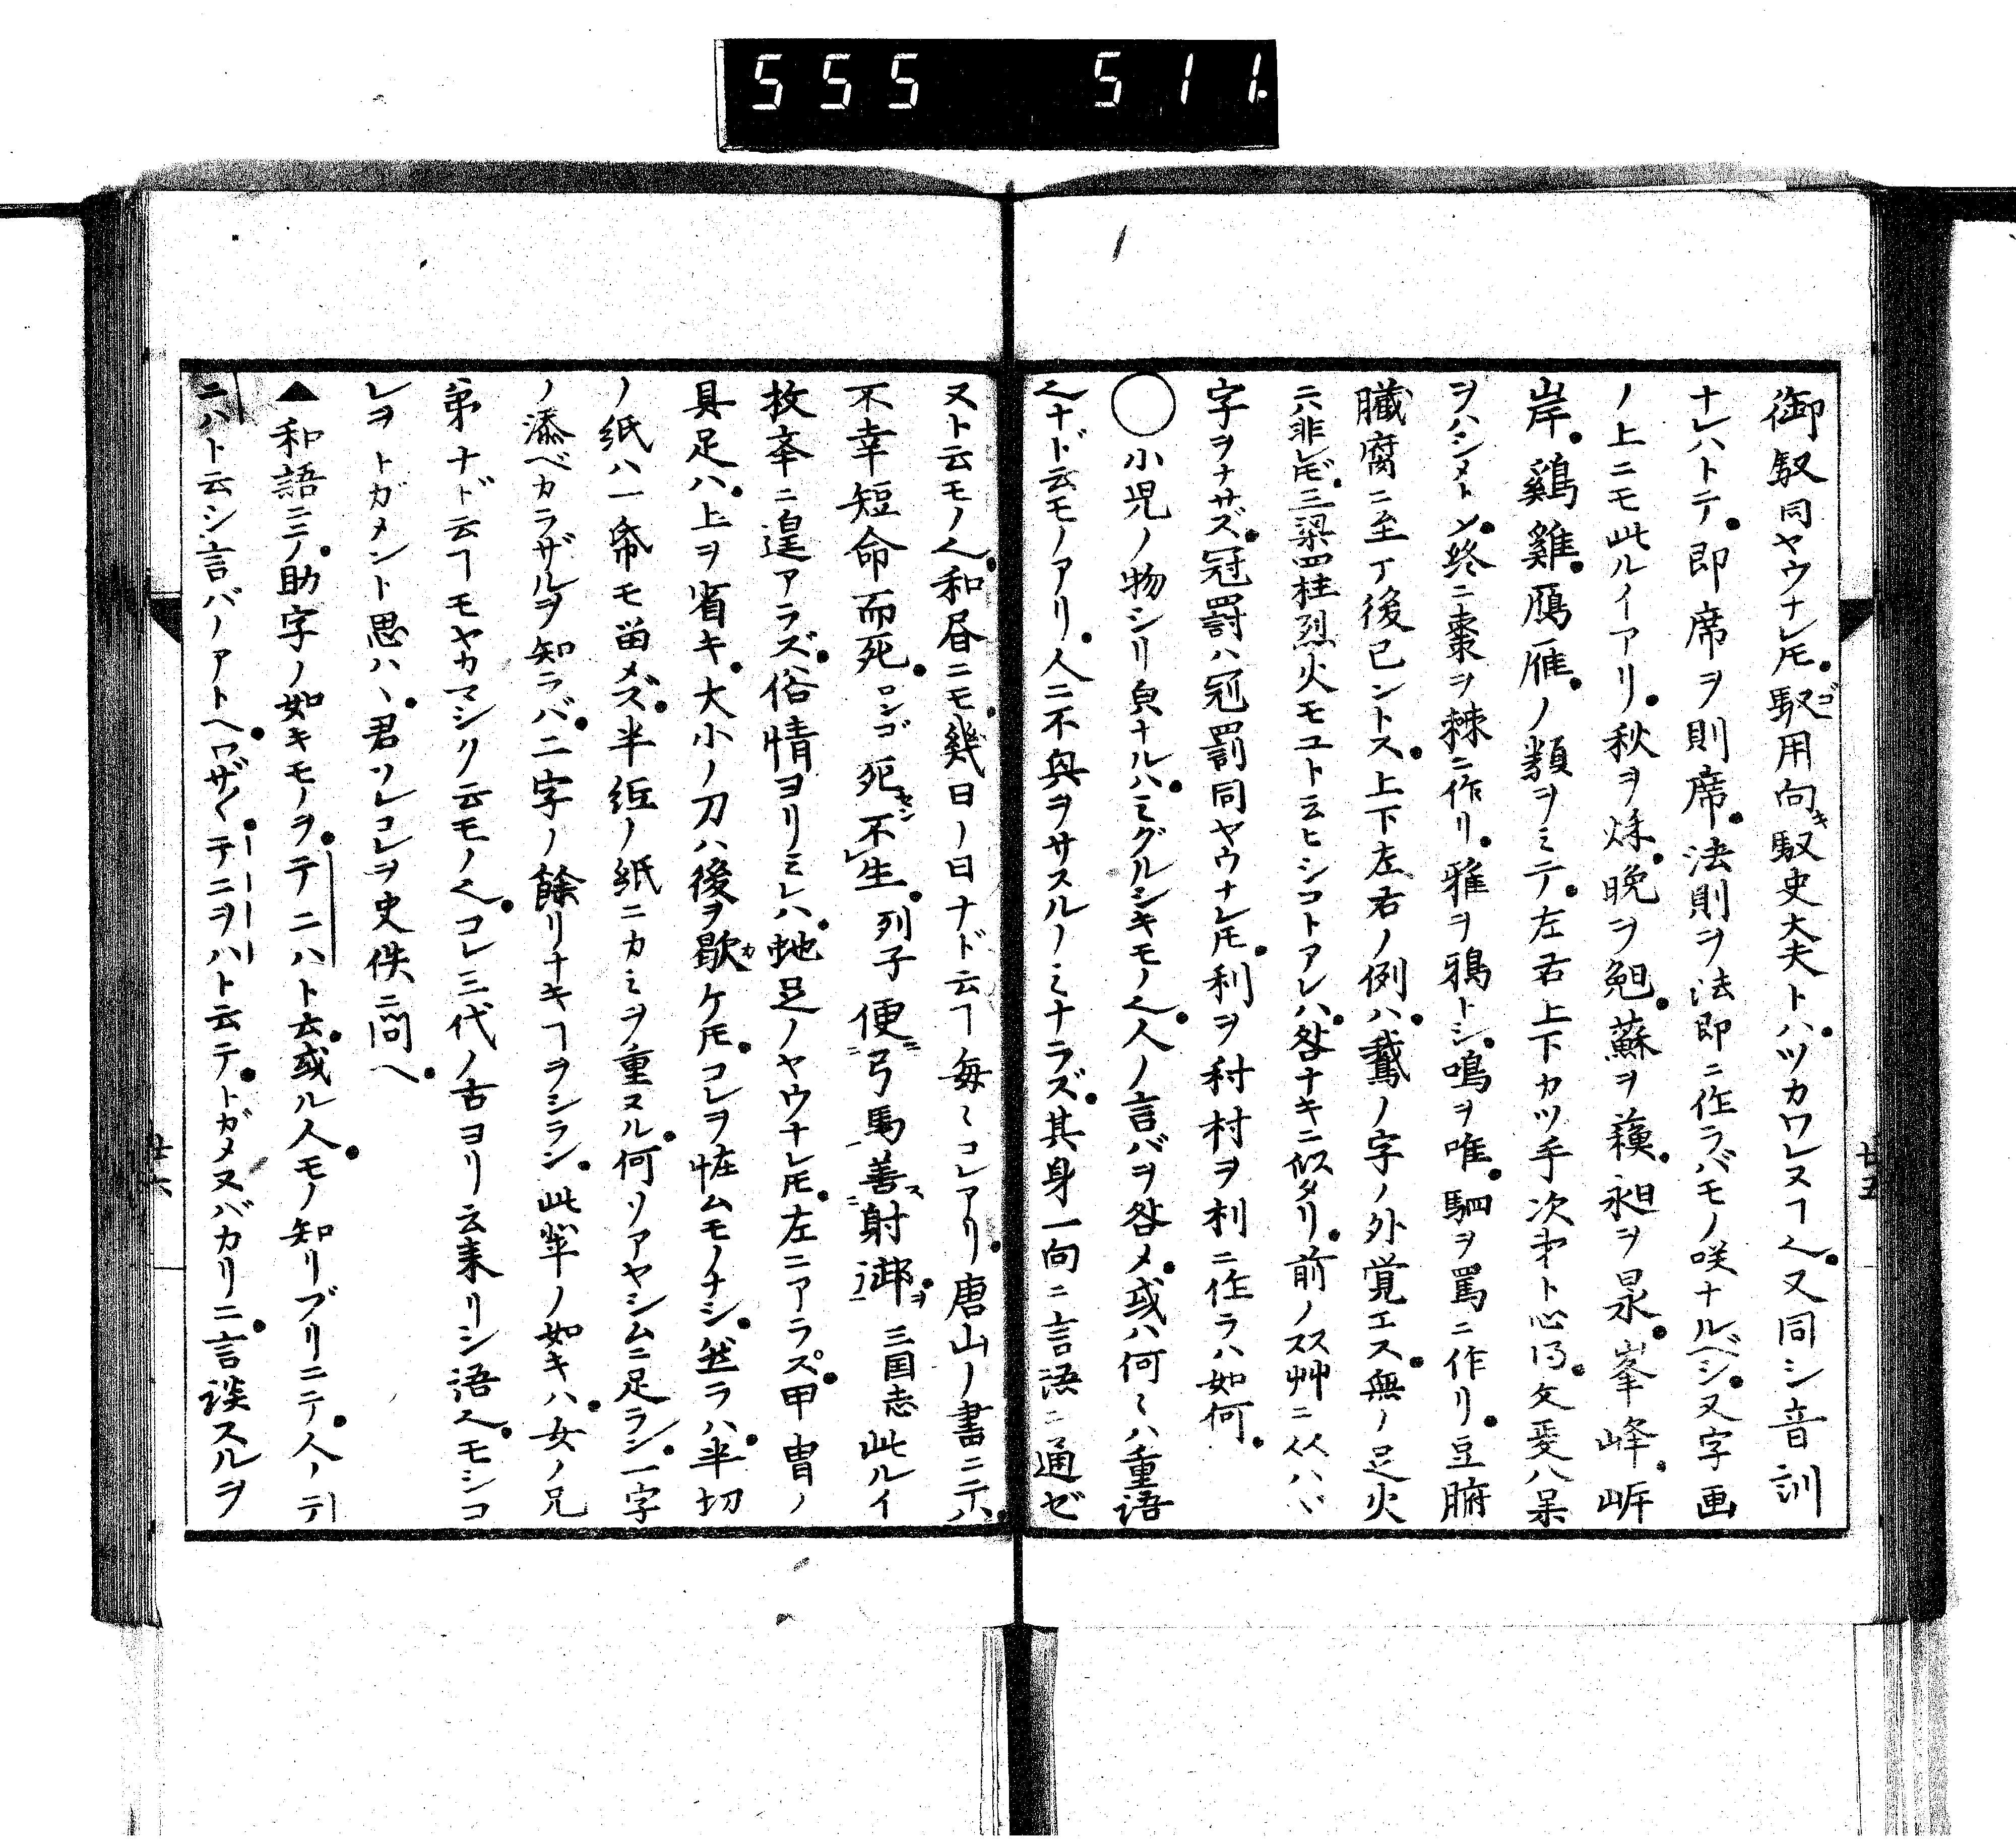 555 511
御馭同ヤウナレ𪜈。馭用向馭吏大夫トハ。ツカワレヌヿ也。又同シ音訓
ナレハトテ。即席ヲ則席。法則ヲ法即ニ作ラバモノ咲ナルベシ。又字画
ノ上ニモ此ルイアリ。秋ヲ秌。晩ヲ。蘇ヲ蘓。昶ヲ。峯峰。𡵆
岸。鷄雞。鴈雁。ノ類ヲミテ。左右上下カツ手次㐧ト心得。文㚑ハ呆
ヲハシメトメ。終ニ棗ヲ棘ニ作リ。雅ヲ鴉トシ。鳴ヲ唯。駟ヲ罵ニ作リ。豆腑
臓腐ニ至テ後已ントス。上下左右ノ例ハ。鵞ノ字ノ外覚エス。無ノ足火
ニハ非レ𪜈。三梁四柱烈火モユト云ヒシコトアレハ。咎ナキニ似タリ。前ノ艸ニ从ハヾ
字ヲナサズ。冠罸ハ冠罰同ヤウナレ𪜈。利ヲ村ヲ利ニ作ラハ如何。
◯小児ノ物シリ貟ナルハ。ミグルシキモノ也。人ノ言バヲ咎メ。或ハ何〻ハ重語
也ナド云モノアリ。人ニ不與ヲサスルノミナラズ。其身一向ニ言語ニ通ゼ
廿五
ヌト云モノ也。和昏ニモ。幾日ノ日ナド云ヿ毎〻コレアリ。唐山ノ書ニテハ。
不幸短命而死。ロンゴ 死セシ不レ生。列子 便ニ弓馬一善ス二射御ヲ一。三国志 此ルイ
枚挙ニ遑アラズ。俗情ヨリミレハ。虵足ノヤウナレ𪜈。左ニアラズ。甲冑ノ
具足ハ。上ヲ省キ。大小ノ刀ハ後ヲ歇カケ𪜈。コレヲ恠ムモノナシ。然ラハ。半切
ノ紙ハ一帋モ畄メズ。半紙ノ紙ニカミヲ重ヌル。何ソアヤシムニ足ラン。一字
ノ添ベカラザルヲ知ラバ。二字ノ餘リナキヿヲシラン。此軰ノ如キハ。女ノ兄
弟ナド云ヿモヤカマシク云モノ也。コレ三代ノ古ヨリ云来リシ語也。モシコ
レヲトガメント思ハヽ。君ソレコレヲ史佚ニ問ヘ。
▲和語ニノ。助字ノ如キモノヲ。テニハト云。或ル人。モノ知リブリニテ。人ノテ
ニハト云シ言バノアトヘ。ワザ〱。テニヲハト云テ。トガメヌバカリニ。言談スルヲ
廿六